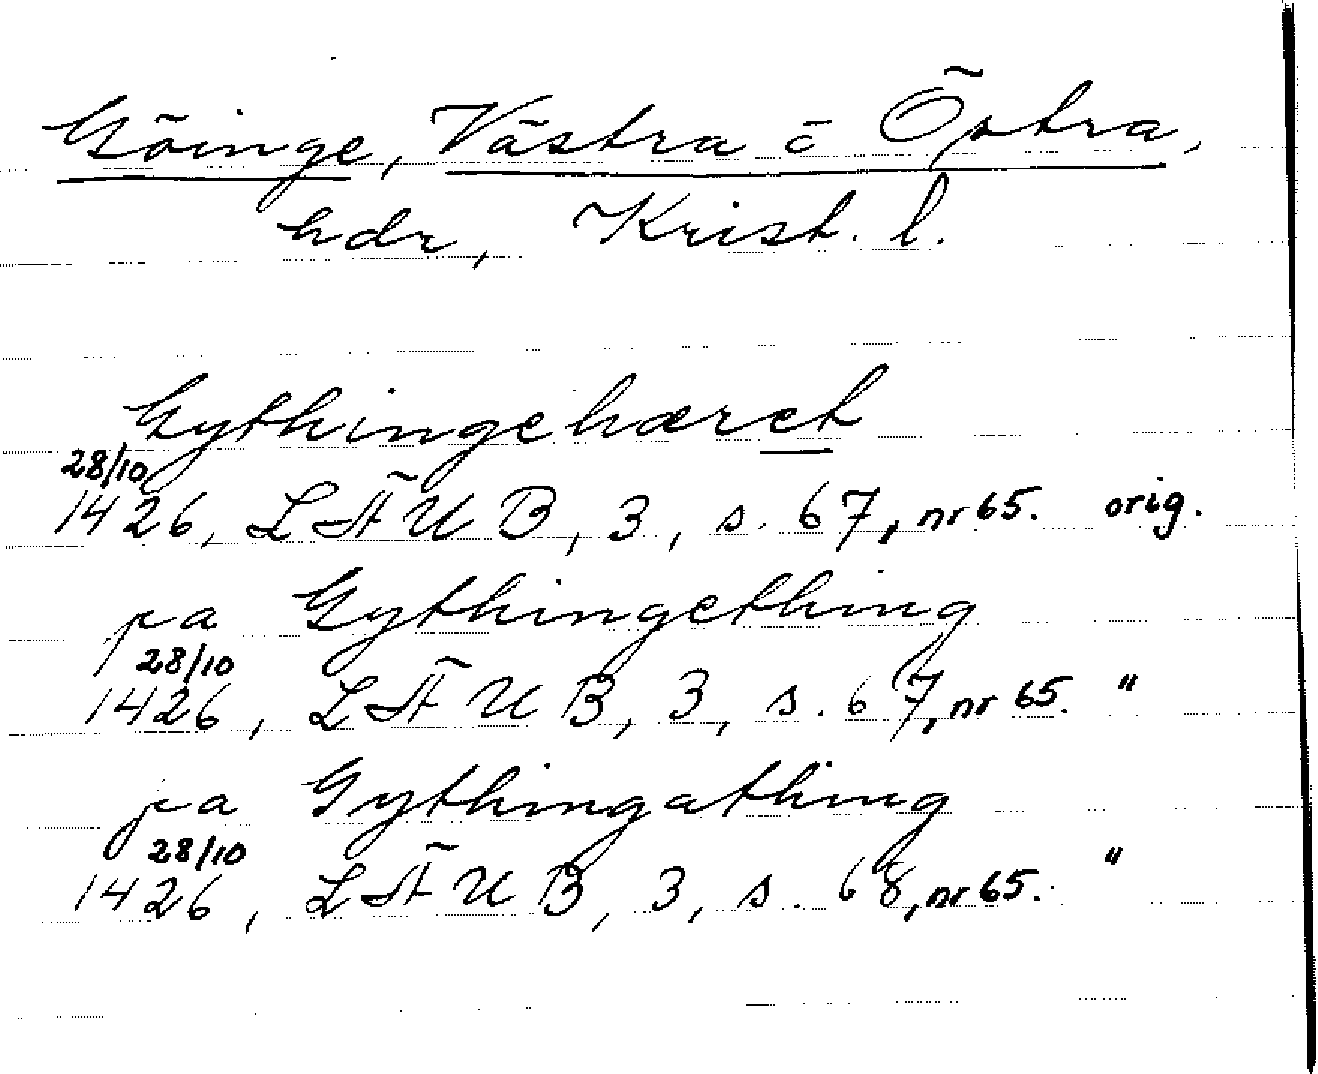 Göinge, Västra o Östra,
hdr, Krist. l.
Gythingehæret
28/10
1426, LÄUB, 3, s. 67, nr 65. orig.
pa Gythingething
28/10
1426, LÄUB, 3, s. 67, nr 65. "
pa Gythingathing
28/10
1426, LÄUB, 3, s. 68, nr 65. "